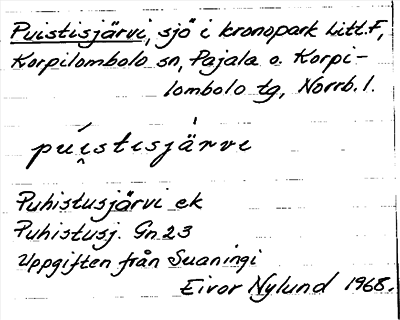 Puistisjärvi, sjö i kronopark Litt. F,
Korpilombolo sn, Pajala o. Korpi-
lombolo tg, Norrb. l.
púi̯stisjä́rvi
Puhistusjärvi ek
Puhistusj. Gn 23
Uppgiften från Suaningi
Eivor Nylund 1968.